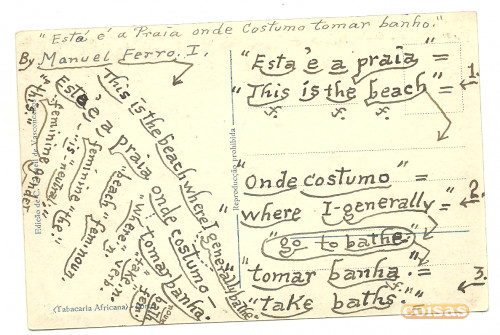 "Está é a Praia onde Costumo tomar banho."
By Manuel Ferro. I.
"Esta é a praia" =
"This is the beach" = 1.
"Onde costumo" =
where I-generally = 2.
"go to bathe."
"tomar banha. =
"take baths. 3.
This is the beach where I generally bathe.
Esta é a praia onde costumo -
tomar banha.
feminine "the"
- is "neutral"
feminine "the"
"beach" feminouy.
"where" n.
Edição de
Reproducção prohibida
(Tabacaria Africana)
coisas